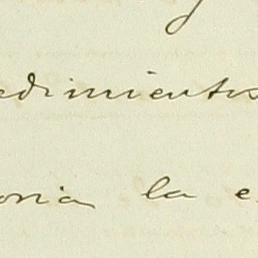 edimientos
oria la e